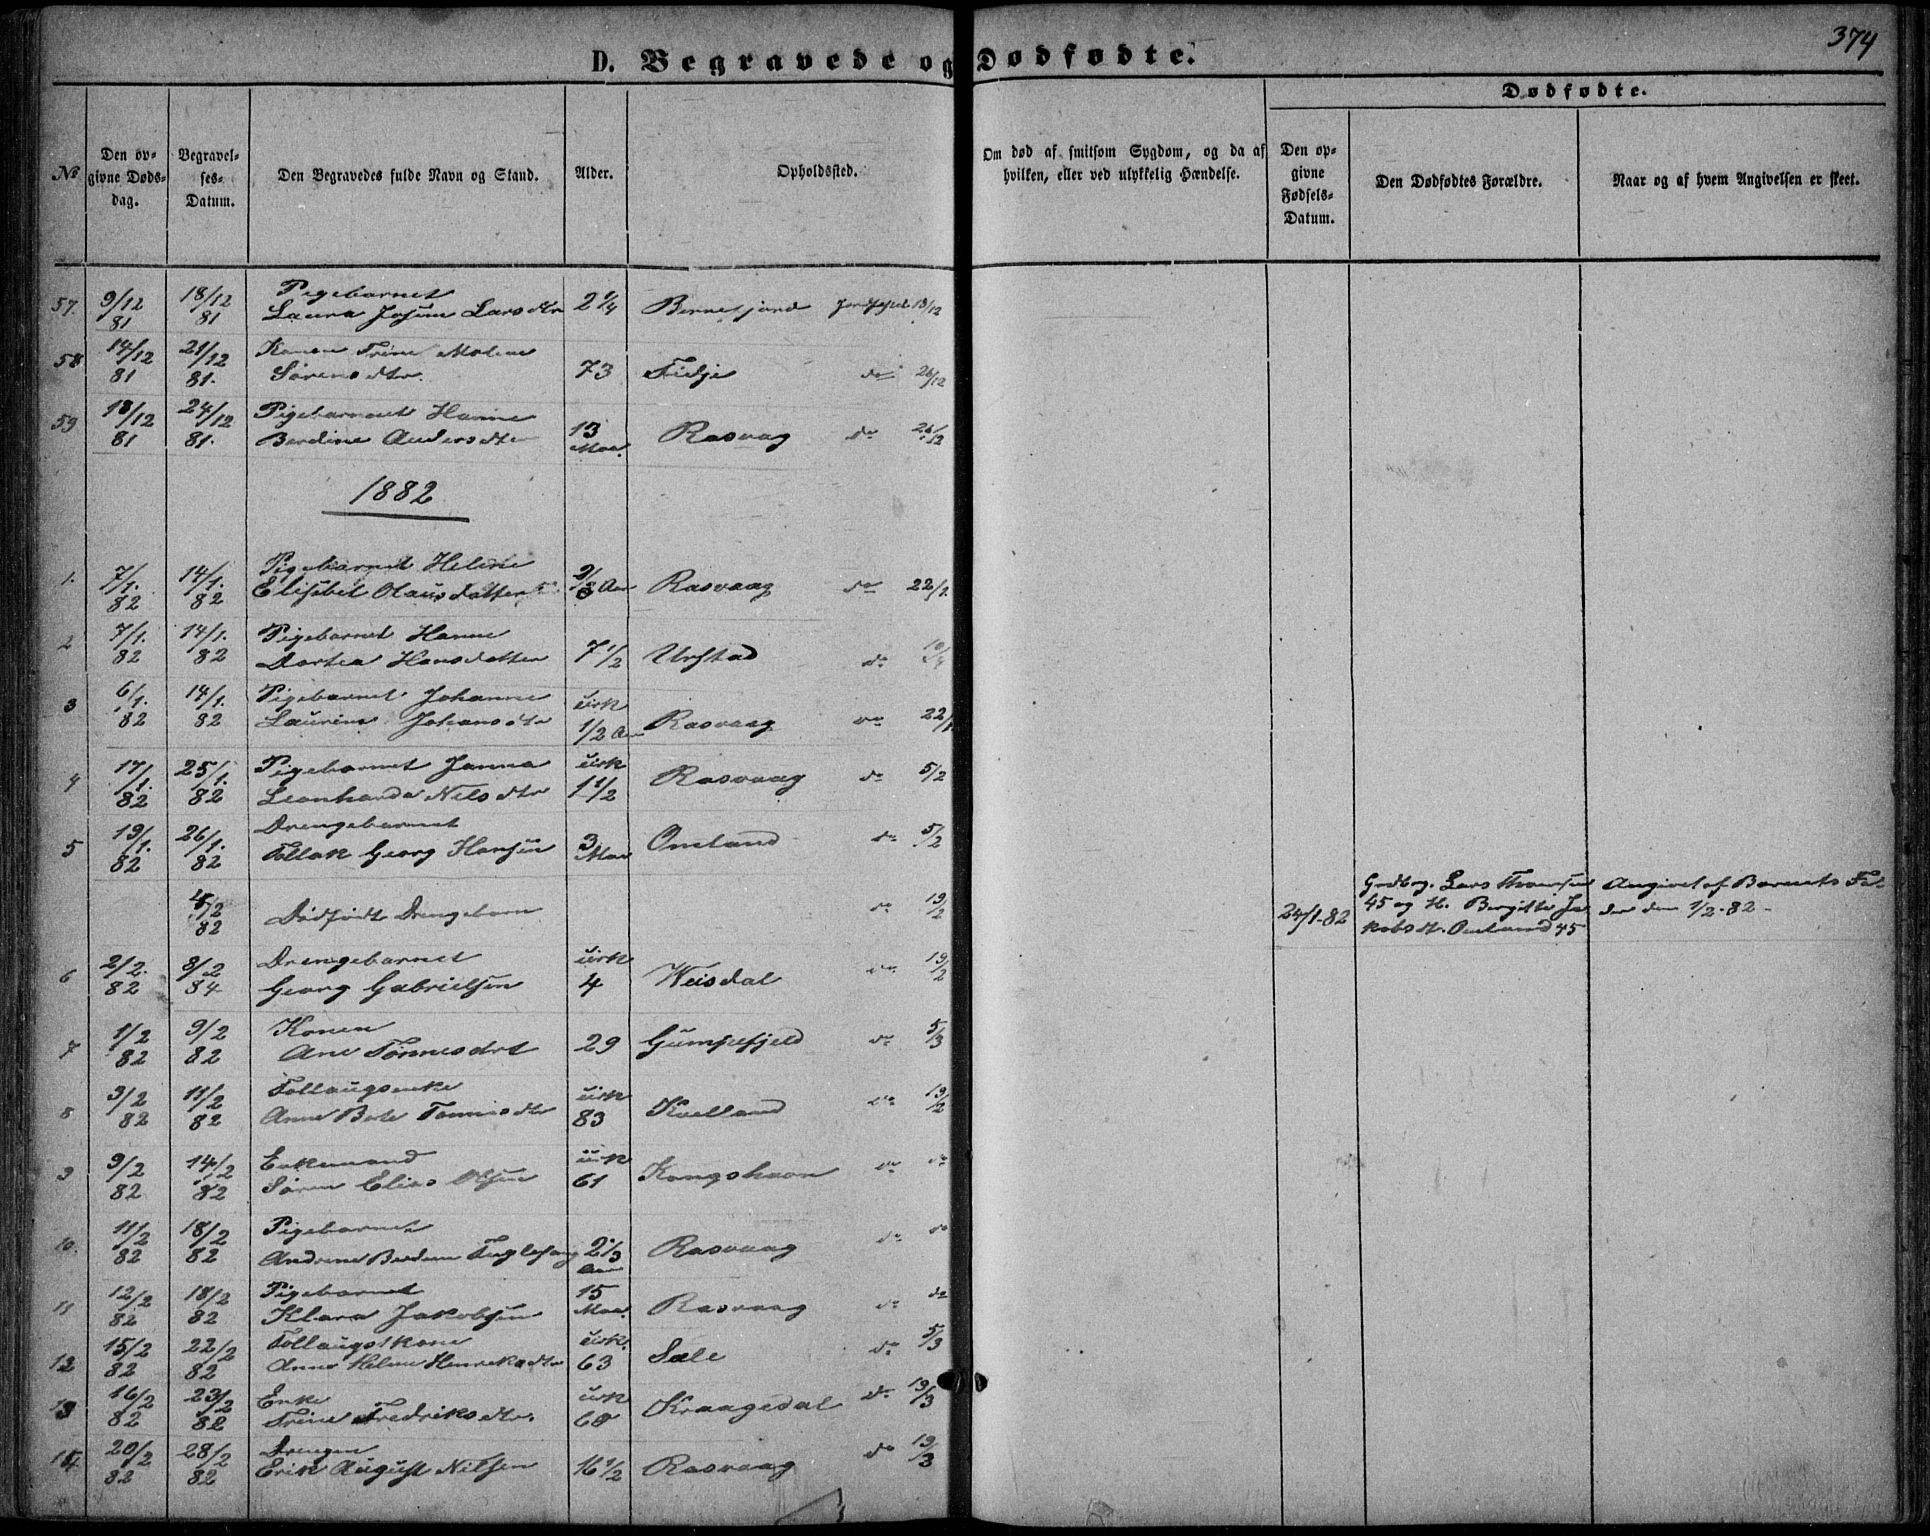 374
D. Begravede og Dødfødte.
Dødfødte.
No
Den op-
givne Døds-
dag.
Begravel-
ses-
Datum.
Den Begravedes fulde Navn og Stand.
Alder.
Opholdssted.
Om død af smitsom Sygdom, og da af
hvilken, eller ved ulykkelig Hændelse.
Den op-
givne
Fødsels-
Datum.
Den Dødfødtes Forældre.
Naar og af hvem Angivelsen er skeet.
57. 9/12 81 18/12 81 Pigebarnet
Laura Larsdtr 2 1/4 Jordfæst 18/12
58 14/12 81 21/12 81. Konen Trine Malene
Sørensdtr. 73 Fidje do 26/12
59 18/12 81 24/12 81. Pigebarnet Hanne
Berdine Andersdtr 13 Maa. Rasvaag do 26/12
1882
1. 7/1. 82 14/1. 82 Pigebarnet Helene
Elisabet Olausdatter Aar Rasvaag do 22/1.
2 7/1. 82 14/1. 82 Pigebarnet Hanne
Dortea Hansdatter 7 1/2 Urstad do
3 6/1. 82 14/1. 82 Pigebarnet Johanne
Laurine Johansdtr cirk 1/2 Aar Rasvaag do 22/1
4 17/1. 82 25/1. 82 Pigebarnet Janna
Leonharda Nilsdtr cirk 1 1/2 Rasvaag do 5/2
5 19/1. 82 26/1. 82 Drengebarnet
Tollak Georg Hansen 3 Maa Omland do 5/2
5/2 82 Dødfødt Drengebarn do 19/2
24/1-82
Gndbrg. Lars Thomsen
45 og H. Bergitte Ja-
kobsdtr. Omland 45
Angivet af Barnets Fa-
der den 1/2-82-
6 2/2. 82 9/2 84 Drengebarnet
Georg Gabrielsen cirk 4 Weisdal do 19/2
7 1/2 82 9/2 82 Konen
Ane Tønnesdrt 29 Gumpefjeld do 5/3
8 3/2 82 11/2 82 Follaugsenke
Anne Tønnesdtr cirk 83 Kvelland do 19/2
9 9/2 82 14/2 82 Enkemand
Søren Elias Olsen cirk 61 Kongshavn do do
10. 11/2 82 18/2 82 Pigebarnet
Andrine Fuglesang 2 1/3 Aar Rasvaag do do
11 12/2 82 18/2 82 Pigebarnet
Klara Jakobsen 15 Maa. Rasvaag do do
12 15/2 82 22/2 82 Follaugskone
Anne Helene Henriksdtr cirk. 63 Sæle do 5/3
13 16/2 82 23/2 82 Enke
Trine Fredriksdtr. cirk Kraagedal do 19/3
14. 20/2 82 28/2 82 Drengen
Erik August Nilsen 16 1/2 Rasvaag do 19/3